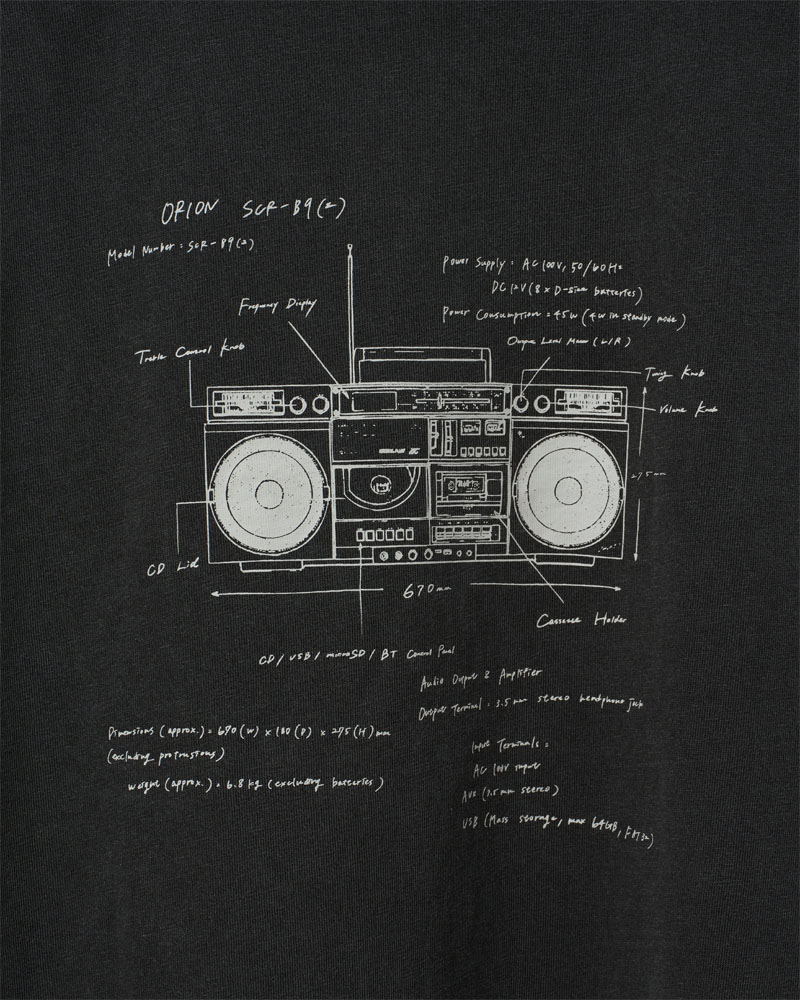 ORION SCR-B9(2)
Model Number : SCR-B9(2)
Power Supply : AC 100V, 50/60Hz
DC 12V (8 x D-size batteries)
Frequency Display
Power Consumption : 45W (4W in standby mode)
Output Level Meter (L/R)
Treble Control Knob
Tuning Knob
Volume Knob
275mm
CD Lid
670mm
Cassette Holder
CD / USB / microSD / BT Control Panel
Audio Output & Amplifier
Output Terminal : 3.5 mm stereo headphone jack
Dimensions (approx.) : 670 (W) x 180 (D) x 275 (H) mm
(excluding protrusions)
Input Terminals :
AC 100V input
weight (approx.) : 6.8 kg (excluding batteries)
AUX (3.5 mm stereo)
USB (Mass storage, max 64GB, FAT32)